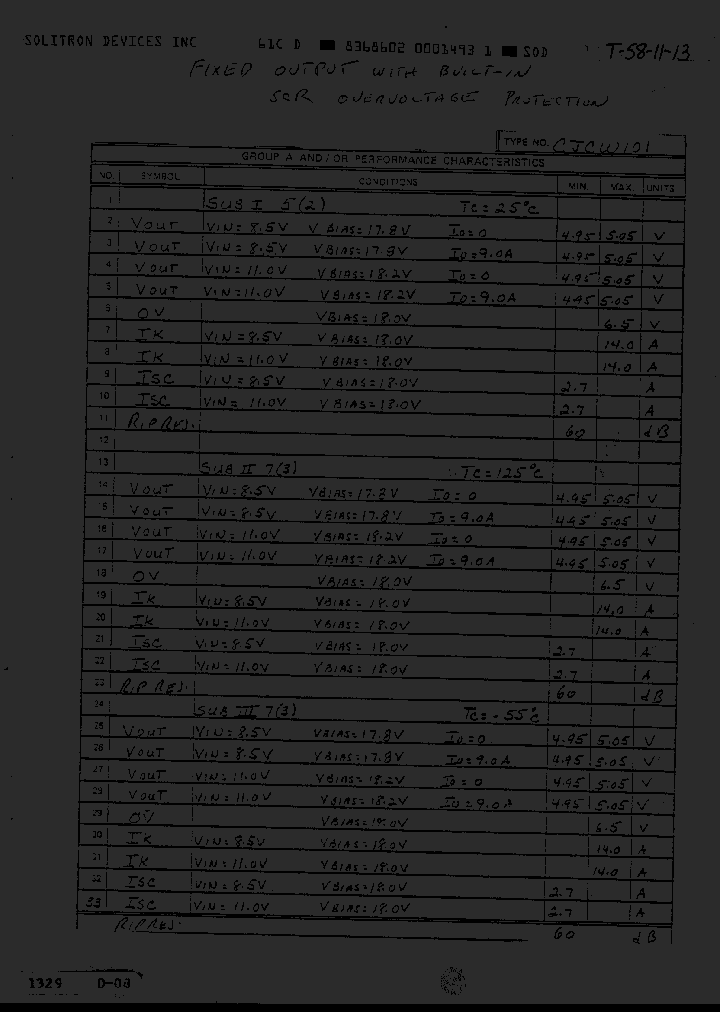 SOLITRON DEVICES INC 61C D 8368602 0001493 1 SOD T-58-11-13
FIXED OUTPUT WITH BUILT-IN
SCR OVERVOLTAGE PROTECTION
TYPE NO. CJCW101
GROUP A AND/OR PERFORMANCE CHARACTERISTICS
NO. SYMBOL CONDITIONS MIN. MAX. UNITS
1 SUB I 5(2) TC=25°C
2 VOUT VIN=8.5V VBIAS=17.8V IO=0 4.95 5.05 V
3 VOUT VIN=8.5V VBIAS=17.8V IO=9.0A 4.95 5.05 V
4 VOUT VIN=11.0V VBIAS=18.2V IO=0 4.95 5.05 V
5 VOUT VIN=11.0V VBIAS=18.2V IO=9.0A 4.95 5.05 V
6 OV VBIAS=18.0V 6.5 V
7 IK VIN=8.5V VBIAS=18.0V 14.0 A
8 IK VIN=11.0V VBIAS=18.0V 14.0 A
9 ISC VIN=8.5V VBIAS=18.0V 2.7 A
10 ISC VIN=11.0V VBIAS=18.0V 2.7 A
11 RIP RES. 60 dB
12
13 SUB II 7(3) TC=125°C
14 VOUT VIN=8.5V VBIAS=17.8V IO=0 4.95 5.05 V
15 VOUT VIN=8.5V VBIAS=17.8V IO=9.0A 4.95 5.05 V
16 VOUT VIN=11.0V VBIAS=18.2V IO=0 4.95 5.05 V
17 VOUT VIN=11.0V VBIAS=18.2V IO=9.0A 4.95 5.05 V
18 OV VBIAS=18.0V 6.5 V
19 IK VIN=8.5V VBIAS=18.0V 14.0 A
20 IK VIN=11.0V VBIAS=18.0V 14.0 A
21 ISC VIN=8.5V VBIAS=18.0V 2.7 A
22 ISC VIN=11.0V VBIAS=18.0V 2.7 A
23 RIP RES. 60 dB
24 SUB III 7(3) TC=-55°C
25 VOUT VIN=8.5V VBIAS=17.8V IO=0 4.95 5.05 V
26 VOUT VIN=8.5V VBIAS=17.8V IO=9.0A 4.95 5.05 V
27 VOUT VIN=11.0V VBIAS=18.2V IO=0 4.95 5.05 V
28 VOUT VIN=11.0V VBIAS=18.2V IO=9.0A 4.95 5.05 V
29 OV VBIAS=18.0V 6.5 V
30 IK VIN=8.5V VBIAS=18.0V 14.0 A
31 IK VIN=11.0V VBIAS=18.0V 14.0 A
32 ISC VIN=8.5V VBIAS=18.0V 2.7 A
33 ISC VIN=11.0V VBIAS=18.0V 2.7 A
RIP RES. 60 dB
1329 D-08